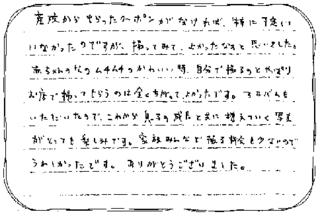 産院からもらったクーポンがなければ、特に撮っていなかったのですが、撮ってみて、よかったなぁと思いました。
あるうちの ムチムチのかわいい時、自分で撮るのとやっぱりお店で撮ってもらうのは全くちがってよかったです。アルバムも
いただいたので、これから息子の成長と共に増えていく写真
がとっても楽しみです。家族みんなで撮る機会も少ないので
うれしかったです。ありがとうございました。